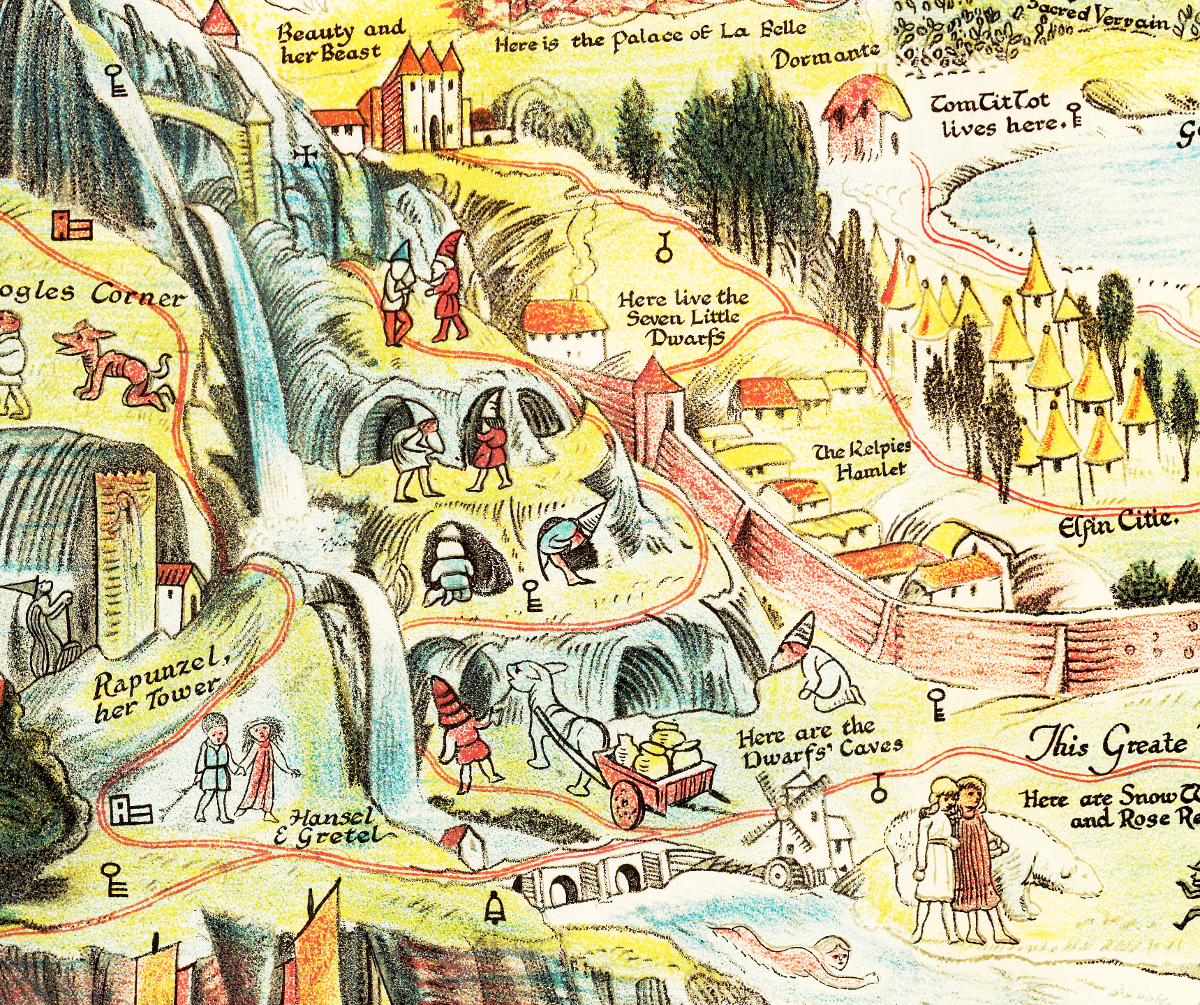 Beauty and
her Beast
Here is the Palace of La Belle
Dormante
Sacred Vervain
TomTitTot
lives here.
G
ogles Corner
Here live the
Seven Little
Dwarfs
The Kelpies
Hamlet
Elfin Citie.
Rapunzel,
her Tower
Hansel
& Gretel
Here are the
Dwarfs' Caves
This Greate
Here are Snow W
and Rose Re